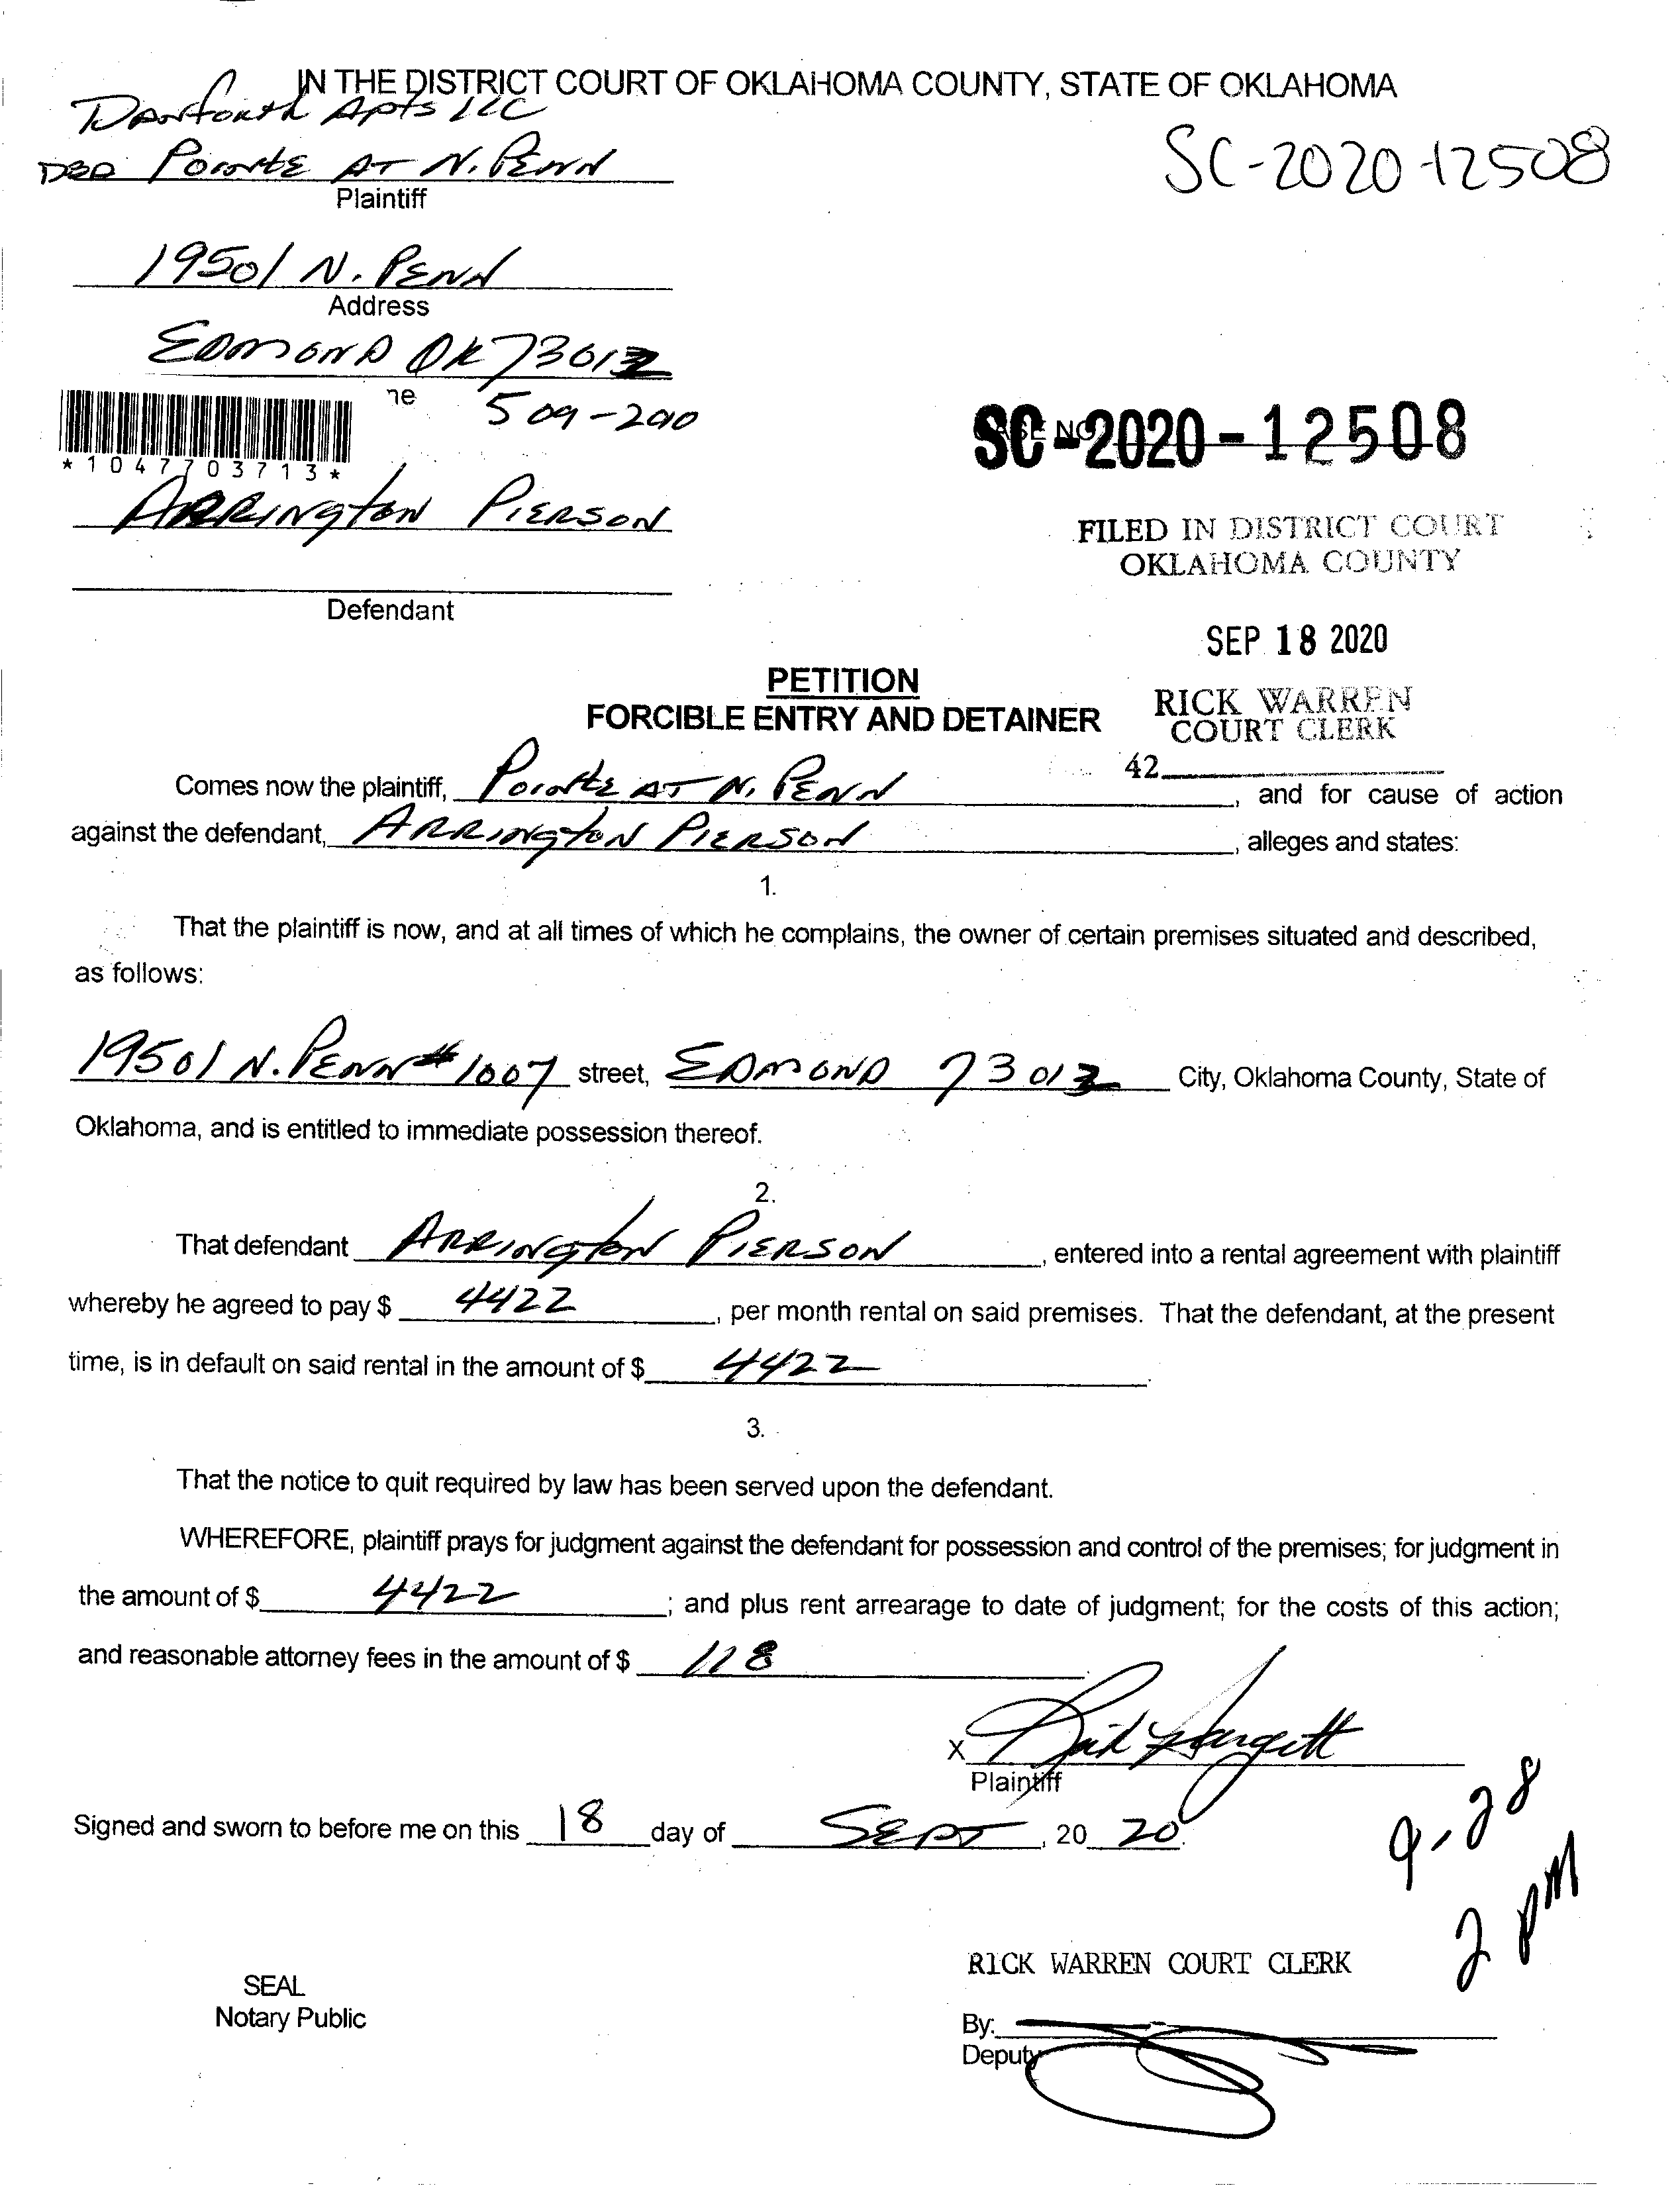 IN THE DISTRICT COURT OF OKLAHOMA COUNTY, STATE OF OKLAHOMA
Danforth Apts LLC
DBA Pointe AT N. PENN
Plaintiff
SC-2020-12508
19501 N. PENN
Address
EDMOND OK 73012
509-290
*1047703713*
SC-2020-12508
ARRINGTON PIERSON
FILED IN DISTRICT COURT
OKLAHOMA COUNTY
Defendant
SEP 18 2020
PETITION
FORCIBLE ENTRY AND DETAINER
RICK WARREN
COURT CLERK
42
Comes now the plaintiff, Pointe AT N. PENN, and for cause of action
against the defendant, ARRINGTON PIERSON, alleges and states:
1.
That the plaintiff is now, and at all times of which he complains, the owner of certain premises situated and described,
as follows:
19501 N. PENN # 1007 street, EDMOND 73012 City, Oklahoma County, State of
Oklahoma, and is entitled to immediate possession thereof.
2.
That defendant ARRINGTON PIERSON, entered into a rental agreement with plaintiff
whereby he agreed to pay $ 4422, per month rental on said premises. That the defendant, at the present
time, is in default on said rental in the amount of $ 4422.
3.
That the notice to quit required by law has been served upon the defendant.
WHEREFORE, plaintiff prays for judgment against the defendant for possession and control of the premises; for judgment in
the amount of $ 4422; and plus rent arrearage to date of judgment; for the costs of this action;
and reasonable attorney fees in the amount of $ 118.
X
Plaintiff
Signed and sworn to before me on this 18 day of SEPT, 20 20.
9-28
2 PM
RICK WARREN COURT CLERK
SEAL
Notary Public
By:
Deputy